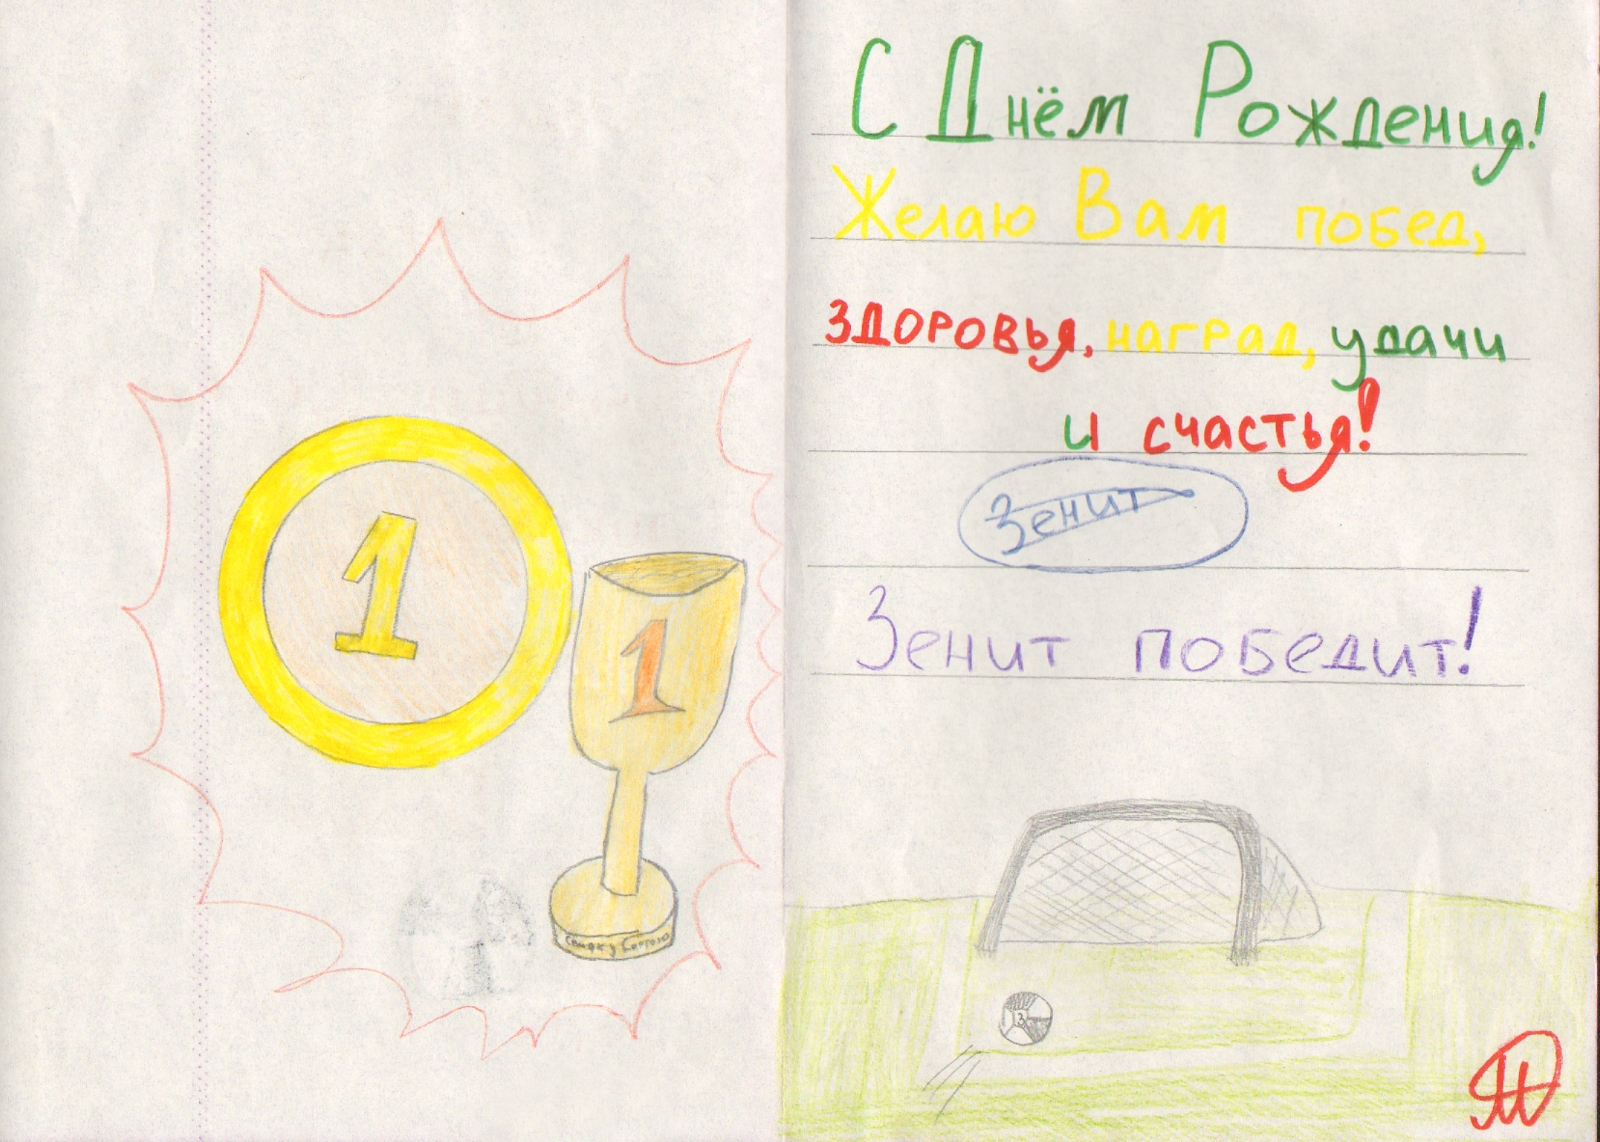 1
1
С Днём Рождения!
Желаю Вам побед,
здоровья, наград, удачи
и счастья!
Зенит
Зенит победит!
З